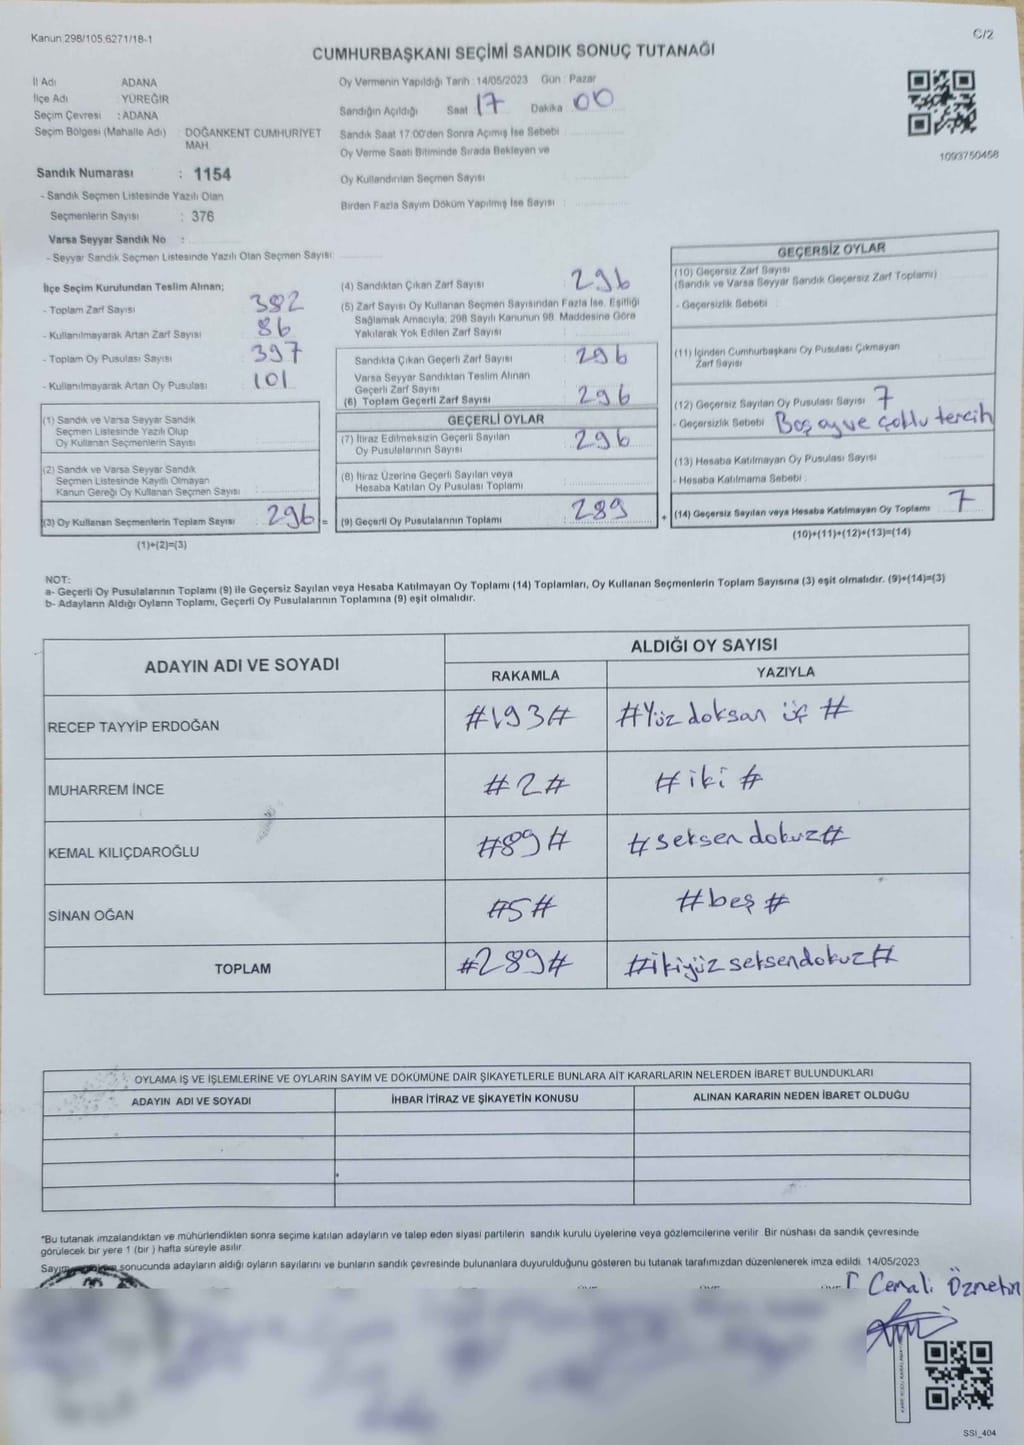 Kanun 298/105,6271/18-1
C/2
CUMHURBAŞKANI SEÇİMİ SANDIK SONUÇ TUTANAĞI
İl Adı ADANA
İlçe Adı YÜREĞİR
Seçim Çevresi : ADANA
Seçim Bölgesi (Mahalle Adı) : DOĞANKENT CUMHURİYET MAH.
Sandık Numarası : 1154
- Sandık Seçmen Listesinde Yazılı Olan
Seçmenlerin Sayısı : 376
Varsa Seyyar Sandık No :
- Seyyar Sandık Seçmen Listesinde Yazılı Olan Seçmen Sayısı:
Oy Vermenin Yapıldığı Tarih : 14/05/2023 Gün : Pazar
Sandığın Açıldığı Saat 17 Dakika 00
Sandık Saat 17:00'den Sonra Açımış İse Sebebi
Oy Verme Saati Bitiminde Sırada Bekleyen ve
Oy Kullandırılan Seçmen Sayısı
Birden Fazla Sayım Döküm Yapılmış İse Sayısı :
1093750458
İlçe Seçim Kurulundan Teslim Alınan;
- Toplam Zarf Sayısı 382
- Kullanılmayarak Artan Zarf Sayısı 86
- Toplam Oy Pusulası Sayısı 397
- Kullanılmayarak Artan Oy Pusulası 101
(1) Sandık ve Varsa Seyyar Sandık
Seçmen Listesinde Yazılı Olup
Oy Kullanan Seçmenlerin Sayısı
(2) Sandık ve Varsa Seyyar Sandık
Seçmen Listesinde Kayıtlı Olmayan
Kanun Gereği Oy Kullanan Seçmen Sayısı
(3) Oy Kullanan Seçmenlerin Toplam Sayısı 296 =
(1)+(2)=(3)
(4) Sandıktan Çıkan Zarf Sayısı 296
(5) Zarf Sayısı Oy Kullanan Seçmen Sayısından Fazla İse, Eşitliği
Sağlamak Amacıyla; 298 Sayılı Kanunun 98. Maddesine Göre
Yakılarak Yok Edilen Zarf Sayısı :
Sandıkta Çıkan Geçerli Zarf Sayısı 296
Varsa Seyyar Sandıktan Teslim Alınan
Geçerli Zarf Sayısı
(6) Toplam Geçerli Zarf Sayısı 296
GEÇERLİ OYLAR
(7) İtiraz Edilmeksizin Geçerli Sayılan
Oy Pusulalarının Sayısı 296
(8) İtiraz Üzerine Geçerli Sayılan veya
Hesaba Katılan Oy Pusulası Toplamı
(9) Geçerli Oy Pusulalarının Toplamı 289 +
GEÇERSİZ OYLAR
(10) Geçersiz Zarf Sayısı
(Sandık ve Varsa Seyyar Sandık Geçersiz Zarf Toplamı)
- Geçersizlik Sebebi :
(11) İçinden Cumhurbaşkanı Oy Pusulası Çıkmayan
Zarf Sayısı
(12) Geçersiz Sayılan Oy Pusulası Sayısı 7
- Geçersizlik Sebebi Boş oy ve çoklu tercih
(13) Hesaba Katılmayan Oy Pusulası Sayısı
- Hesaba Katılmama Sebebi :
(14) Geçersiz Sayılan veya Hesaba Katılmayan Oy Toplamı 7
(10)+(11)+(12)+(13)=(14)
NOT:
a- Geçerli Oy Pusulalarının Toplamı (9) ile Geçersiz Sayılan veya Hesaba Katılmayan Oy Toplamı (14) Toplamları, Oy Kullanan Seçmenlerin Toplam Sayısına (3) eşit olmalıdır. (9)+(14)=(3)
b- Adayların Aldığı Oyların Toplamı, Geçerli Oy Pusulalarının Toplamına (9) eşit olmalıdır.
ADAYIN ADI VE SOYADI ALDIĞI OY SAYISI
RAKAMLA YAZIYLA
RECEP TAYYİP ERDOĞAN #193# #Yüz doksan üç #
MUHARREM İNCE #2# #iki #
KEMAL KILIÇDAROĞLU #89# #seksen dokuz#
SİNAN OĞAN #5# #beş #
TOPLAM #289# #ikiyüz seksendokuz#
OYLAMA İŞ VE İŞLEMLERİNE VE OYLARIN SAYIM VE DÖKÜMÜNE DAİR ŞİKAYETLERLE BUNLARA AİT KARARLARIN NELERDEN İBARET BULUNDUKLARI
ADAYIN ADI VE SOYADI İHBAR İTİRAZ VE ŞİKAYETİN KONUSU ALINAN KARARIN NEDEN İBARET OLDUĞU
*Bu tutanak imzalandıktan ve mühürlendikten sonra seçime katılan adayların ve talep eden siyasi partilerin sandık kurulu üyelerine veya gözlemcilerine verilir. Bir nüshası da sandık çevresinde
görülecek bir yere 1 (bir ) hafta süreyle asılır.
sonucunda adayların aldığı oyların sayılarını ve bunların sandık çevresinde bulunanlara duyurulduğunu gösteren bu tutanak tarafımızdan düzenlenerek imza edildi. 14/05/2023
Cemali
SSI_404